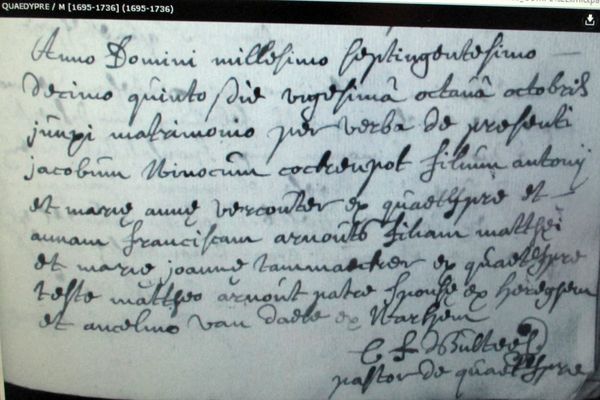 QUAEDYPRE / M [1695-1736] (1695-1736)
Anno Domini millesimo septingentesimo
Decimo quinto die vigesimâ octavâ octobris
junxi matrimonio per verba de presenti
jacobum Winocum cockenpot filium antonij
et marię annę vercouter ex quaetypre et
annam franciscam arnouts filiam matthei
et marie joannę tammaecker ex quaetypre
teste mattheo arnout patre sponsę ex hereghem
et ancelmo van daele ex Warhem
pastor de quaetypre